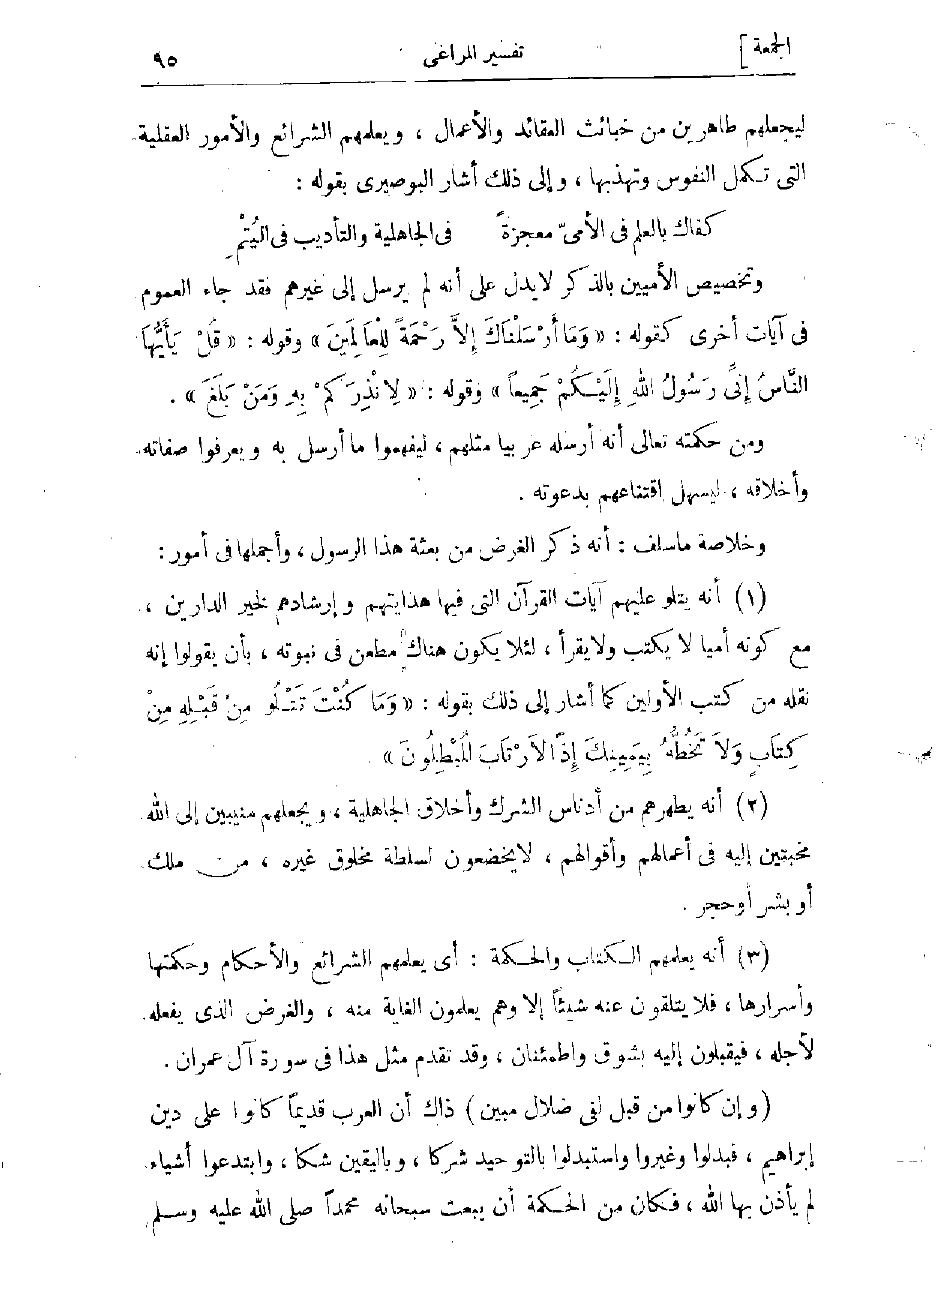 الجمعة ] تفسير المراغى ٩٥
ليجعلهم طاهرين من خبائث العقائد والأعمال ، ويعلمهم الشرائع والأمور العقلية
التى تكمل النفوس وتهذبها ، وإلى ذلك أشار البوصيرى بقوله :
كفاك بالعلم فى الأمىّ معجزةً فى الجاهلية والتأديب فى اليُتْمِ
وتخصيص الأميين بالذكر لايدل على أنه لم يرسل إلى غيرهم فقد جاء العموم
فى آيات أخرى كقوله : « وَمَا أَرْسَلْنَاكَ إِلاَّ رَحْمَةً لِلْعَالَمِينَ » وقوله : « قُلْ يَأَيُّهَا
النَّاسُ إِنِّى رَسُولُ اللهِ إِلَيْكُمْ جَمِيعاً » وقوله : « لِأُنْذِرَكُمْ بِهِ وَمَنْ بَلَغَ » .
ومن حكمته تعالى أنه أرسله عربيا مثلهم ، ليفهموا ما أرسل به ويعرفوا صفاته
وأخلاقه ، ليسهل اقتناعهم بدعوته .
وخلاصة ماسلف : أنه ذكر الغرض من بعثة هذا الرسول ، وأجملها فى أمور :
(١) أنه يتلو عليهم آيات القرآن التى فيها هدايتهم وإرشادهم لخير الدارين ،
مع كونه أميا لا يكتب ولايقرأ ، لئلا يكون هناك مطعن فى نبوته ، بأن يقولوا إنه
نقله من كتب الأولين كما أشار إلى ذلك بقوله : « وَمَا كُنْتَ تَتْلُو مِنْ قَبْلِهِ مِنْ
كِتَابٍ وَلاَ تَخُطُّهُ بِيَمِينِكَ إِذًا لاَرْتَابَ الْمُبْطِلُونَ » .
(٢) أنه يطهرهم من أدناس الشرك وأخلاق الجاهلية ، ويجعلهم منيبين إلى الله
مخبتين إليه فى أعمالهم وأقوالهم ، لايخضعون لسلطة مخلوق غيره ، من ملك
أو بشر أو حجر .
(٣) أنه يعلمهم الكتاب والحكمة : أى يعلمهم الشرائع والأحكام وحكمتها
وأسرارها ، فلا يتلقون عنه شيئاً إلا وهم يعلمون الغاية منه ، والغرض الذى يفعله
لأجله ، فيقبلون إليه بشوق واطمئنان ، وقد تقدم مثل هذا فى سورة آل عمران .
(وإن كانوا من قبل لفى ضلال مبين) ذاك أن العرب قديماً كانوا على دين
إبراهيم ، فبدلوا وغيروا واستبدلوا بالتوحيد شركا ، وباليقين شكا ، وابتدعوا أشياء
لم يأذن بها الله ، فكان من الحكمة أن يبعث سبحانه محمداً صلى الله عليه وسلم